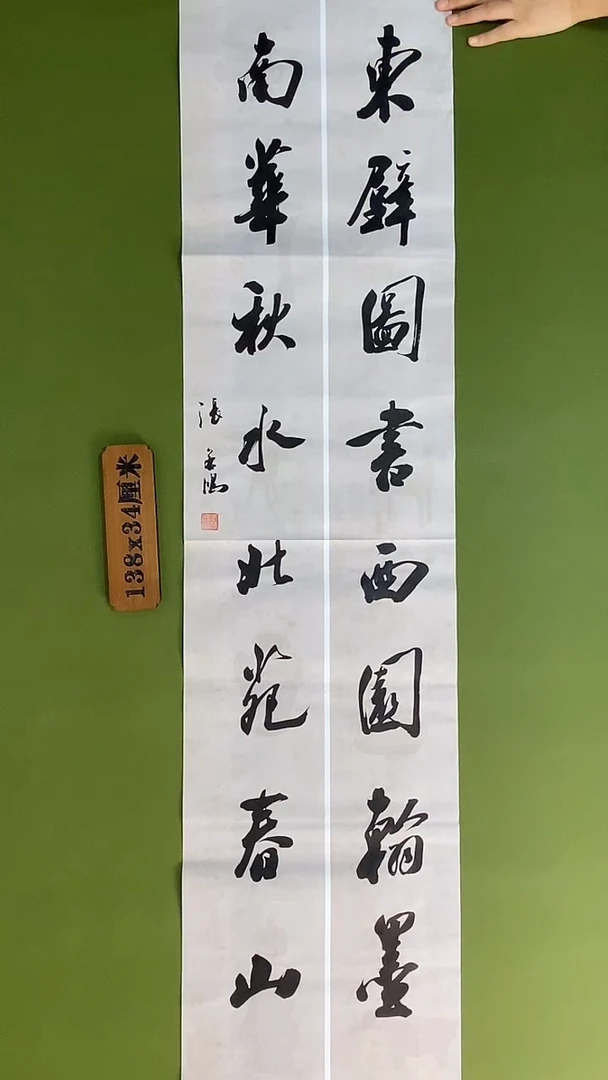 東壁圖書西園翰墨
南華秋水北苑春山
張
138x34厘米